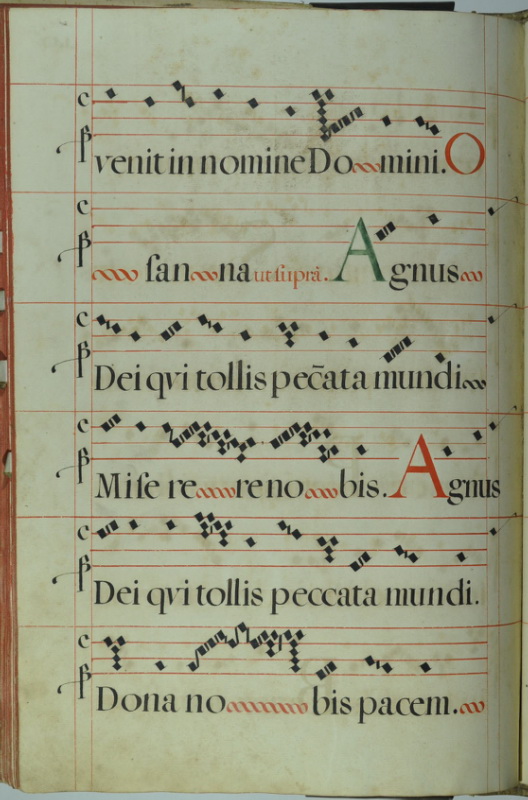 venit in nomine Domini. O
sanna ut suprà. Agnus
Dei qvi tollis pec̃ata mundi
Misererenobis. Agnus
Dei qvi tollis peccata mundi.
Dona nobis pacem.